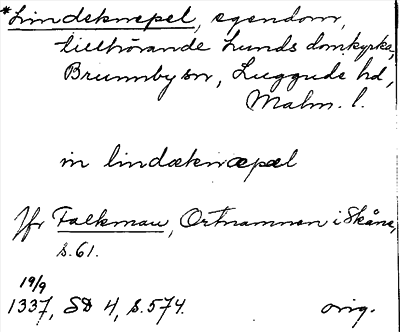 *Lindeknæpel, egendom,
tillhörande Lunds domkyrka,
Brunnby sn, Luggude hd,
Malm. l.
in lindæknæpæl
Jfr Falkman, Ortnamnen i Skåne,
s. 61.
19/9
1337, SD 4, s. 574. orig.